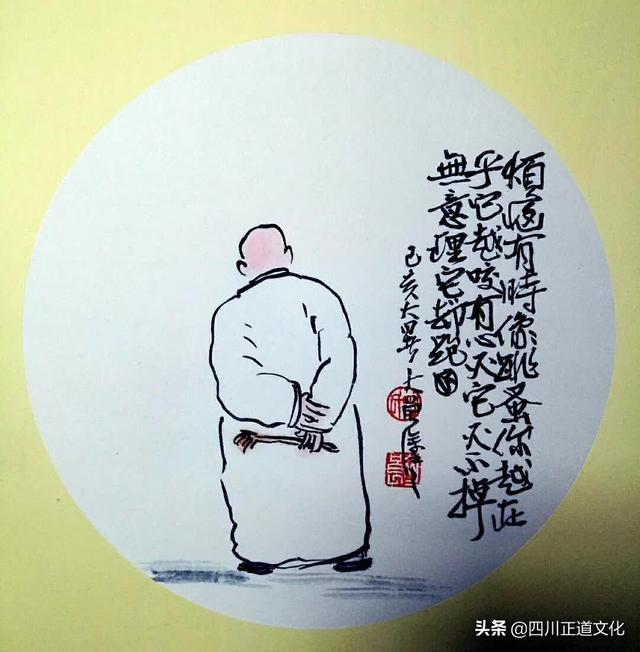 煩惱有時像跳蚤你越在
乎它越咬有心灭它灭不掉
無意理它却跑
己亥大暑
头条 @四川正道文化